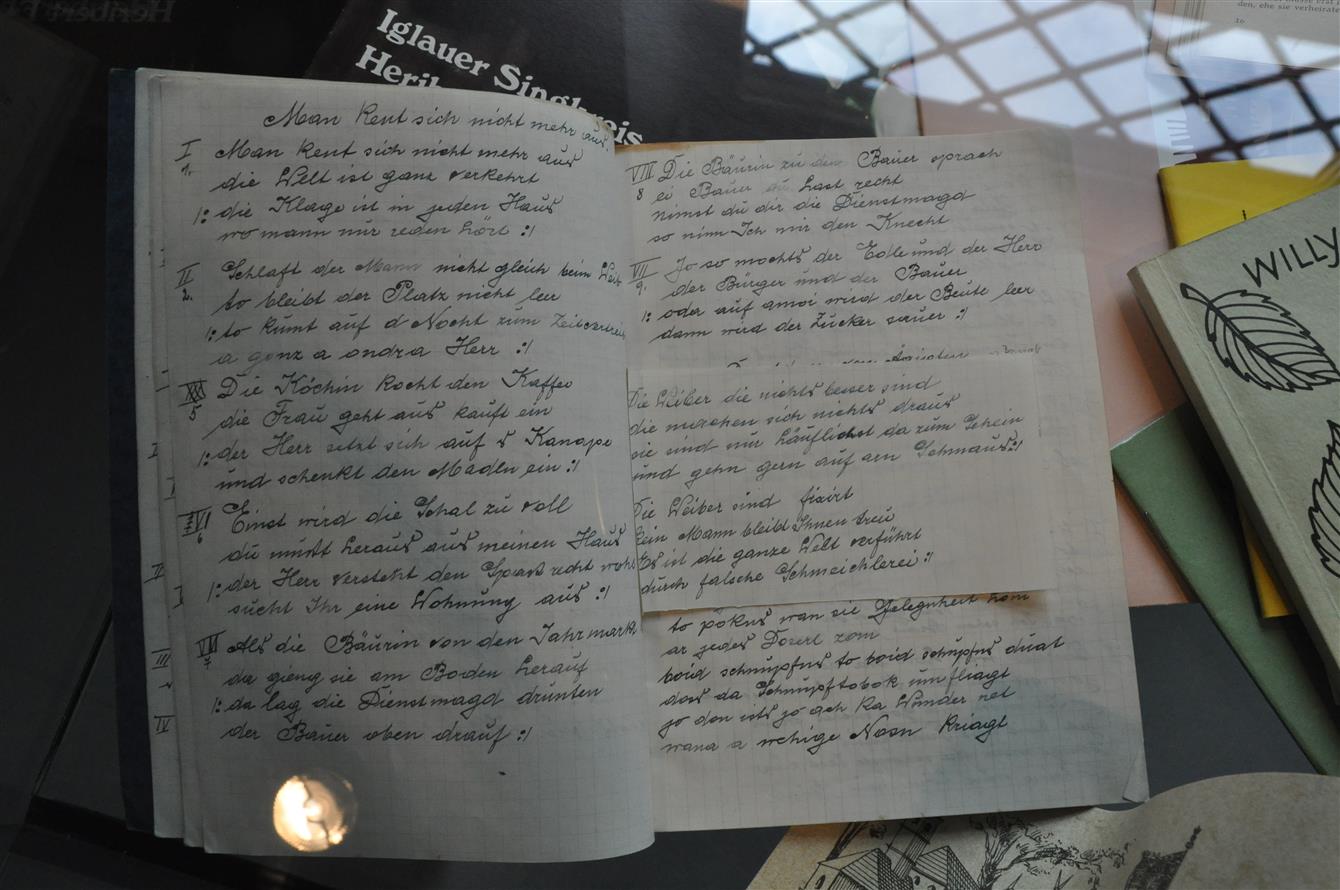 Iglauer Singkreis
Man kent sich nicht mehr aus.
I
1.
Man kent sich nicht mehr aus
die Welt ist ganz verkehrt
|: die Klage ist in jeden Haus
wo mann nur reden hört :|
II
2.
Schlaft der Mann nicht gleich beim Weib
to bleibt der Platz nicht leer
|: to kumt auf d Nocht zum Zeitvertreib
a gonz a ondra Herr :|
5
Die Köchin kocht den Kaffee
die Frau geht aus kauft ein
|: der Herr setzt sich auf s Kanape
und schenkt den Maden ein :|
VI
6
Einst wird die Schal zu voll
du mußt heraus aus meinen Haus
|: der Herr versteht den Spass recht wohl
sucht Ihr eine Wohnung aus :|
VII
7
Als die Bäurin von den Jahrmark
da gieng sie am Boden herauf
|: da lag die Dienstmagd drunten
der Bauer oben drauf :|
VIII
8
Die Bäurin zu den Bauer sprach
ei Bauer du hast recht
nimst du dir die Dienstmagd
so nim Ich mir den Knecht
9.
Jo so mochts der Edle und der Herr
der Bürger und der Bauer
|: oda auf amoi wird der Beute leer
dann wird der Zucker sauer :|
Die Weiber die nichts besser sind
die machen sich nichts draus
sie sind nur häuflichst da zum Schein
und gehn gern auf am Schmaus :|
Die Weiber sind fixirt
kein Mann bleibt Ihnen treu
Es ist die ganze Welt verführt
durch falsche Schmeichlerei :|
to pökns wan sie Gelegnheit hom
ar jedes Doserl zom
boid schnupfns to boid schnupfns duat
dos da Schnupftobok umfliagt
jo don ists jo ach ka Wunder net
wana a wehige Nosn kriagt
WILLY
den, ehe sie verheirate